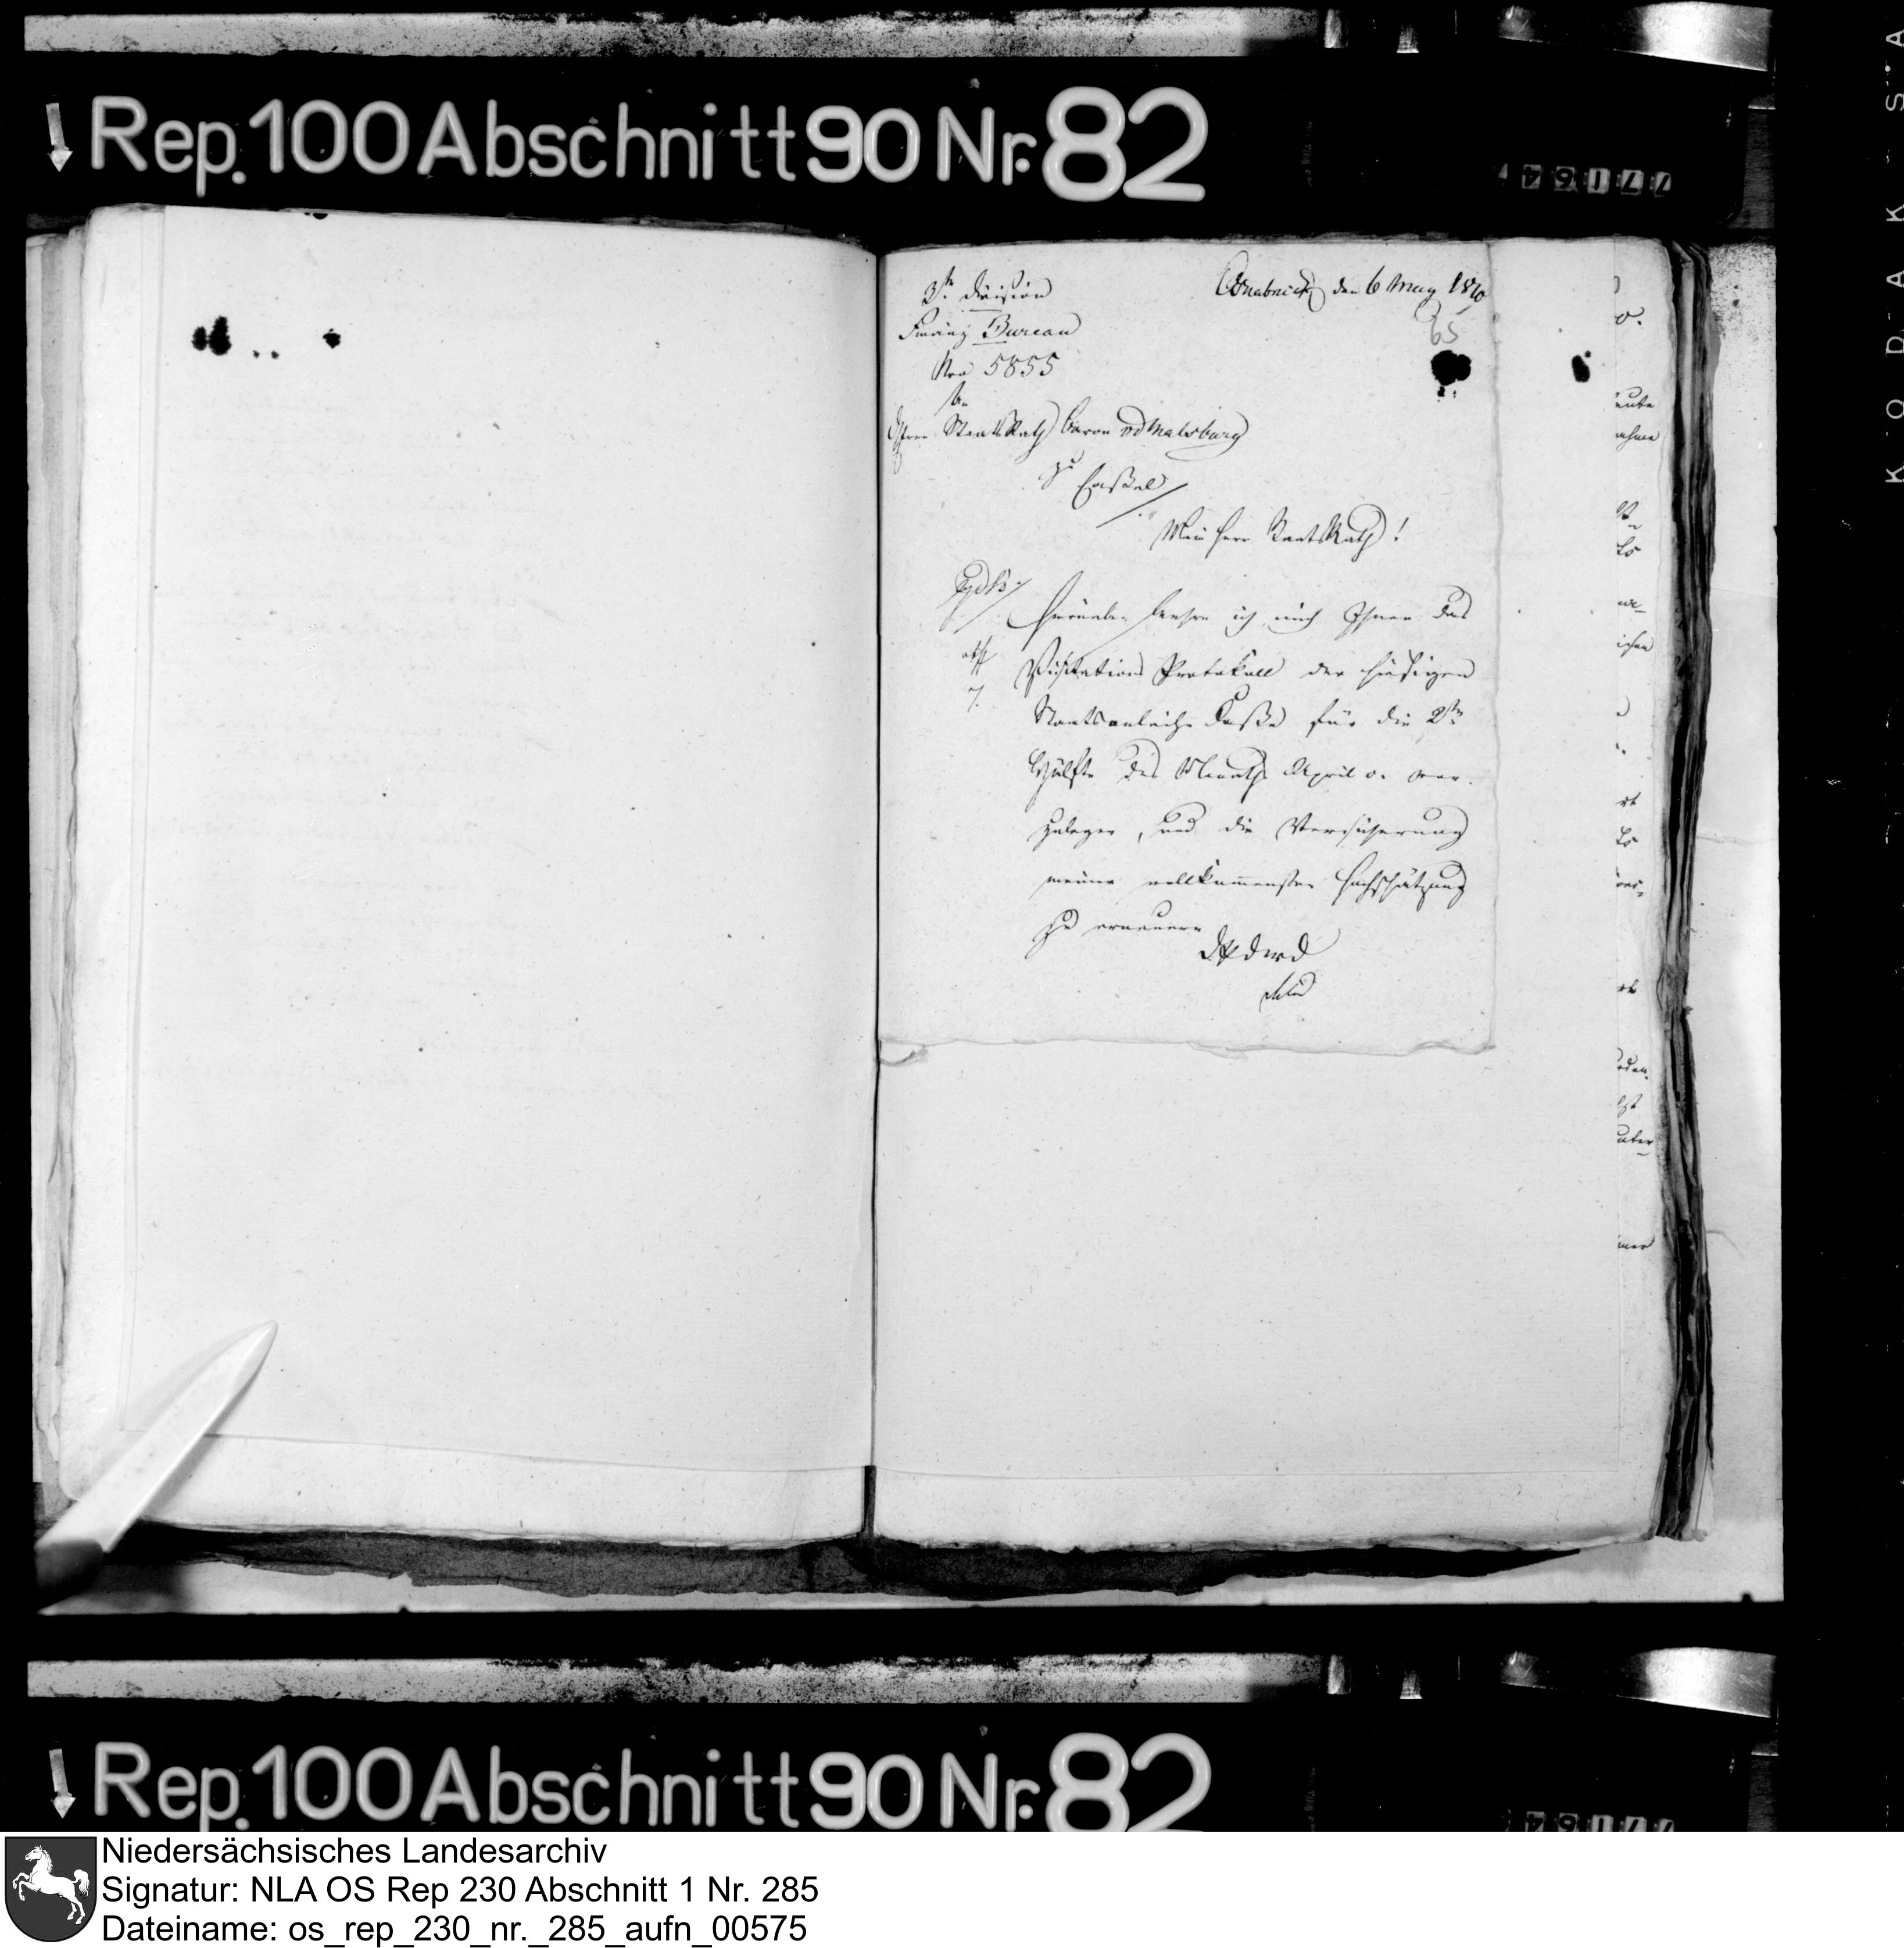 Rep. 100 Abschnitt 90 Nr. 82
77164
KODAK · SA
3te Division
Finanz Bureau
Nro 5855
Osnabrück den 6 May 1810
65
An
Herrn StaatsRath Baron vd Malsburg
zu Cassel
Mein Herr StaatsRath!
Hierneben beehre ich mich Ihnen das
Visitations Protokoll der hiesigen
Staatsanleihe Kasse für die 2te
Hälfte des Monaths April c. vor-
zulegen, und die Versicherung
meiner vollkommensten Hochschätzung
zu erneuern
Rep. 100 Abschnitt 90 Nr. 82
Niedersächsisches Landesarchiv
Signatur: NLA OS Rep 230 Abschnitt 1 Nr. 285
Dateiname: os_rep_230_nr._285_aufn_00575